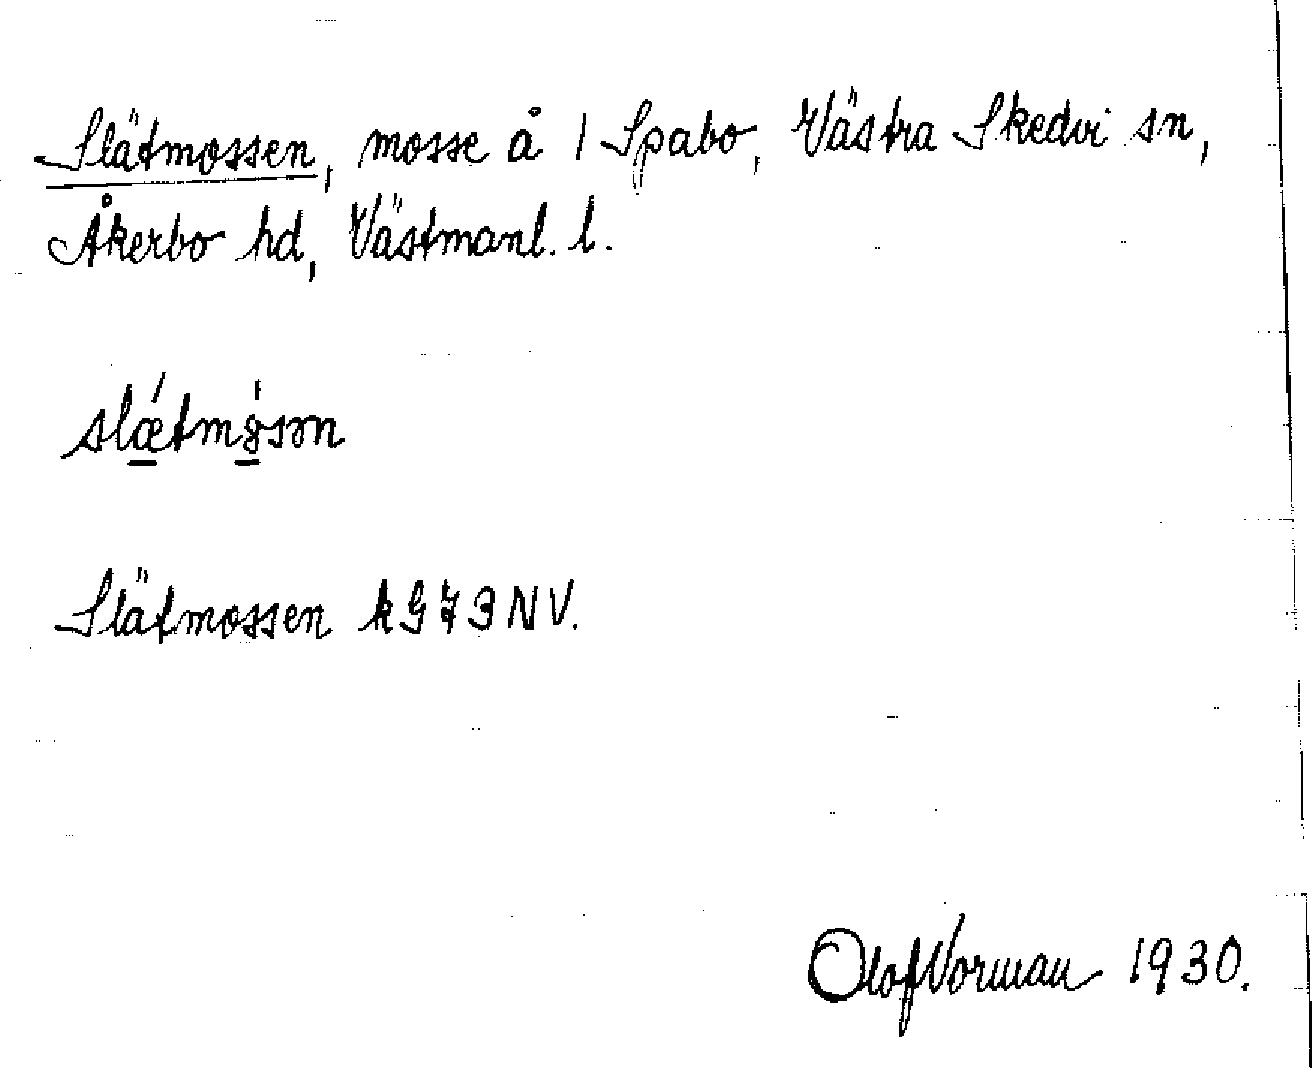 Slätmossen, mosse å 1 Spabo, Västra Skedvi sn,
Åkerbo hd, Västmanl. l.
slǽtmȯ́sən
Slätmossen kG73NV.
Olof Vorman 1930.